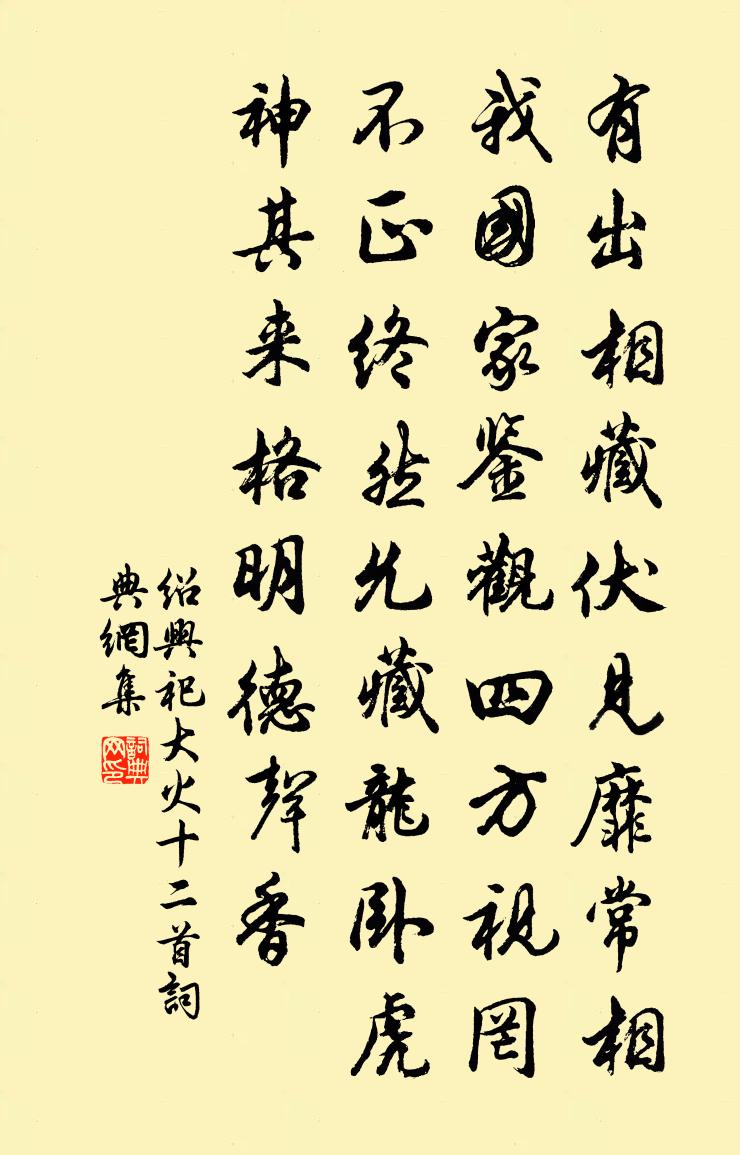 有出相藏伏見靡常相
我國家鉴觀四方視罔
不正終然允藏龍卧虎
神其来格明德聲香
绍興祀大火十二首詞
典網集
詞典网印